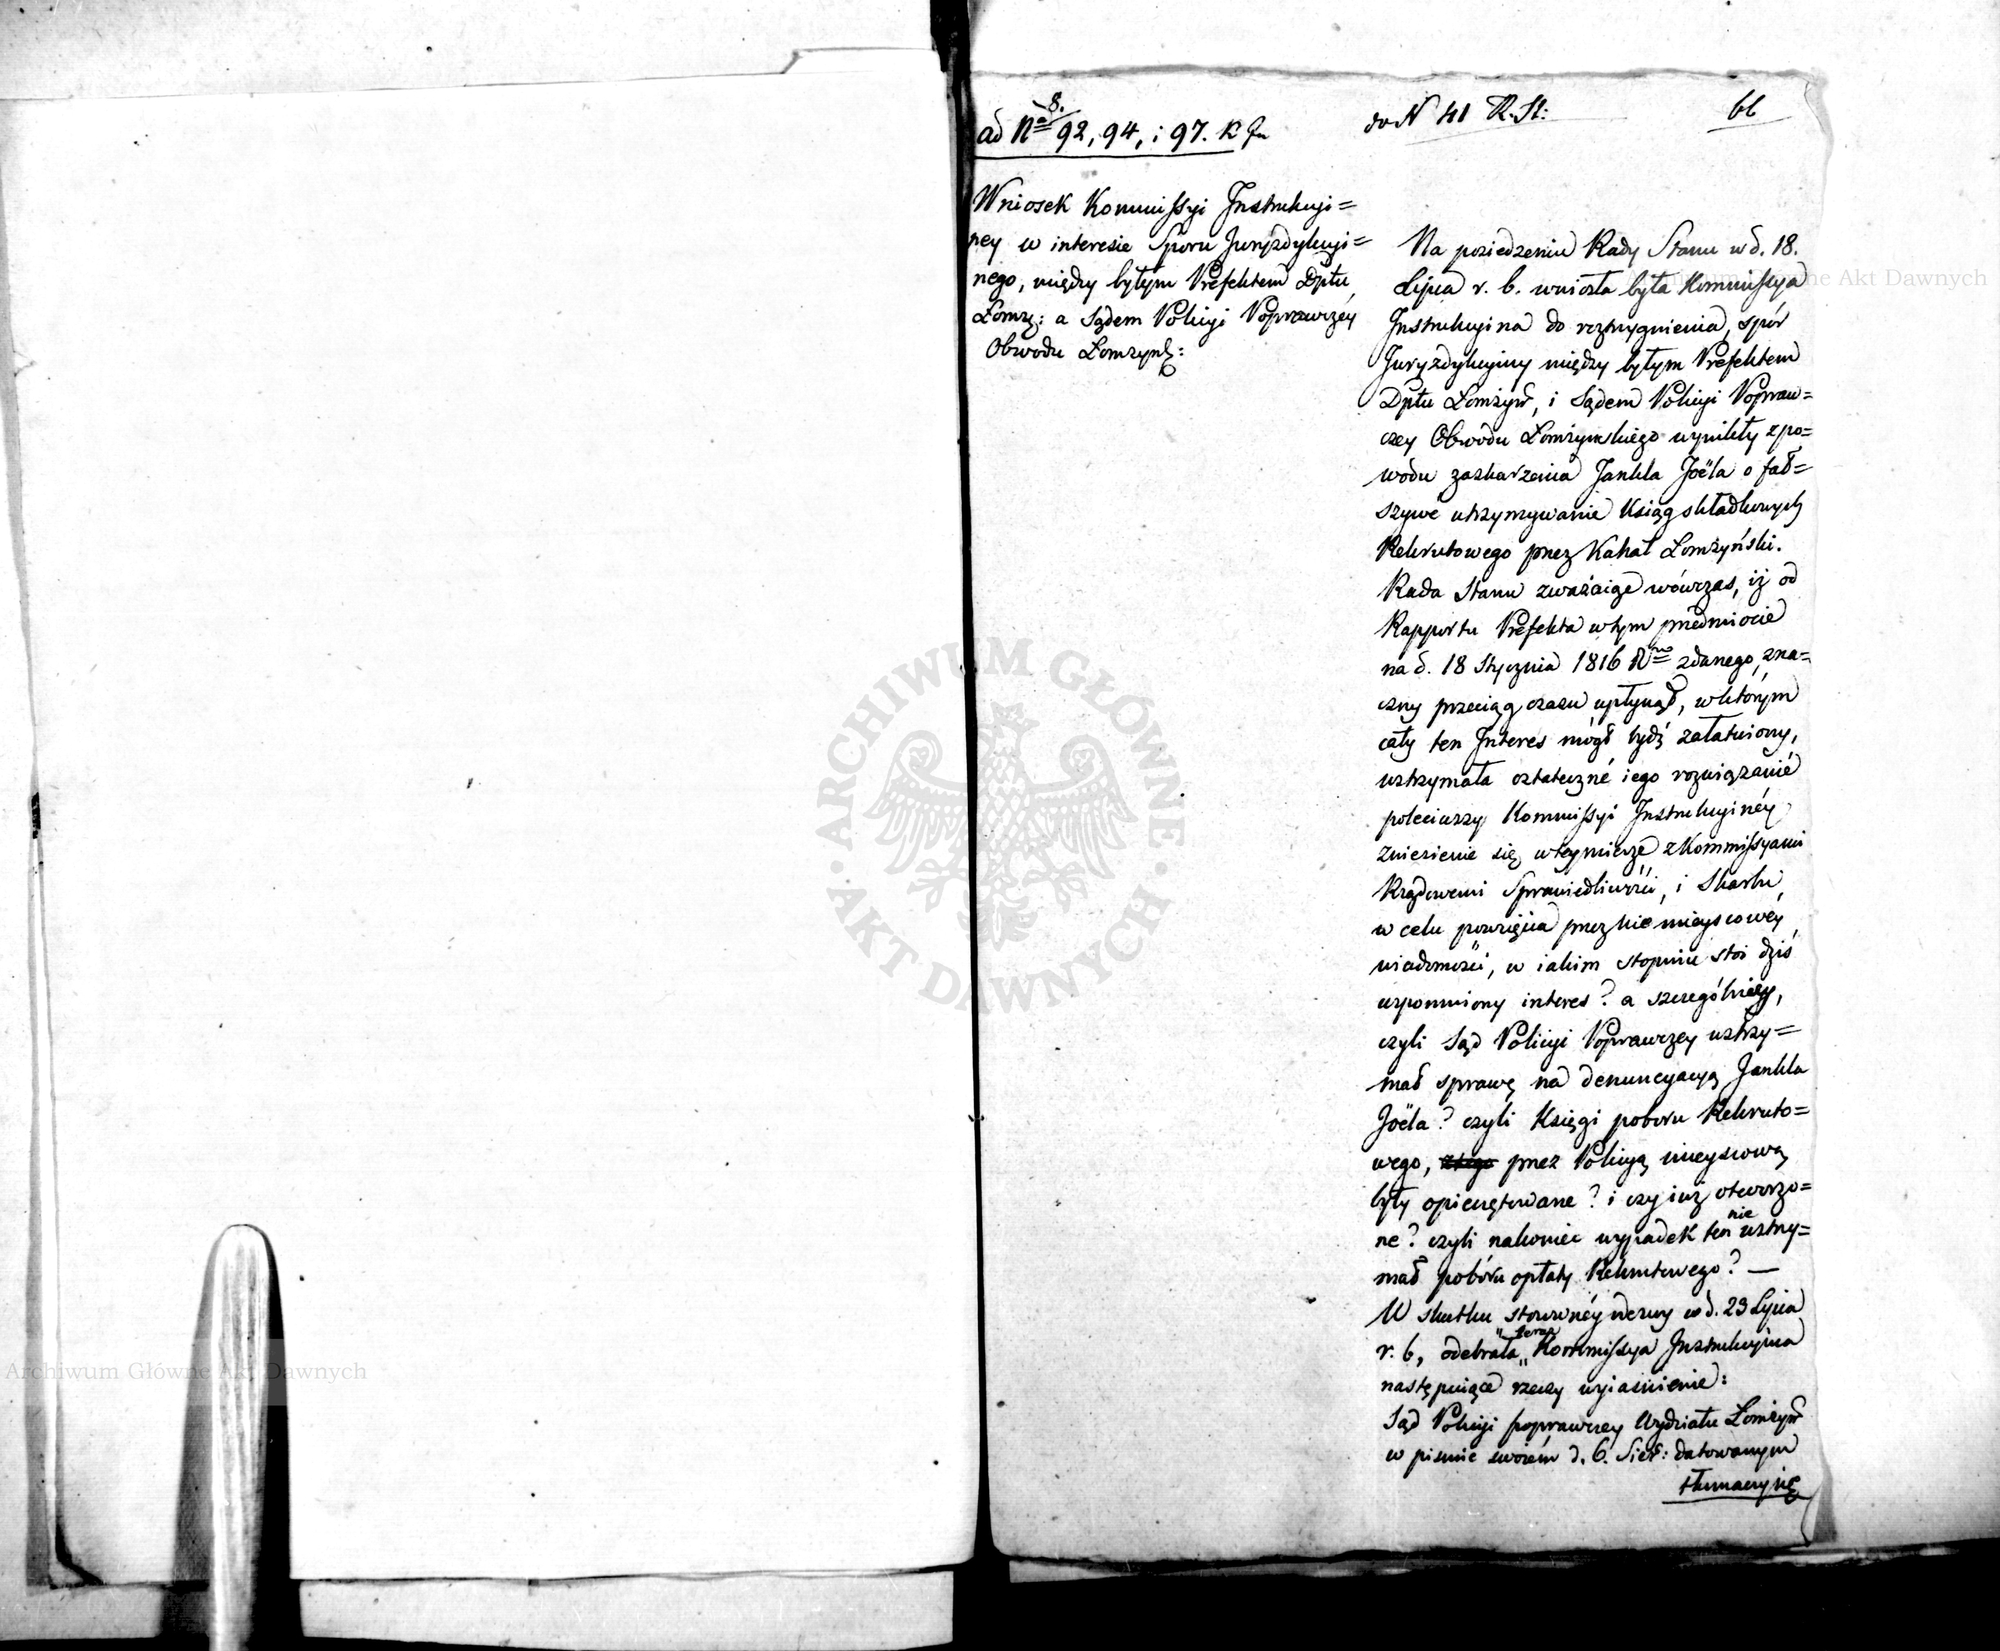 8.
ad Nra 92, 94, i 97. K
do N 41 R. St:
66
Wniosek Kommissyi Instrukcyi=
ney w interesie Sporu Juryzdykcyi=
nego, między byłym Prefektem Dptu
Łomż: a Sądem Policyi Poprawczey
Obwodu Łomżyńs:
Na posiedzeniu Rady Stanu w d. 18.
Lipca r. b. wniosła była Kommissya
Instrukcyina do rozstrzygnienia, spór
Juryzdykcyiny między byłym Prefektem
Dptu Łomżyńs, i Sądem Policyi Popraw=
czey Obwodu Łomżyńskiego wynikły z po=
wodu zaskarżenia Jankla Joëla o fał=
szywe utrzymywanie Ksiąg składkowych
Rekrutowego przez Kahał Łomżyński.
Rada Stanu zważaiąc wówczas, iż od
Rapportu Prefekta w tym przedmiocie
na d. 18 Stycznia 1816 Rno zdanego, zna=
czny przeciąg czasu upłynął, w którym
cały ten Interes mógł bydź załatwiony,
wstrzymała ostateczné iego rozwiązanié
poleciwszy Kommissyi Instrukcyinéy
zniesienie się w tey mierze z Kommissyami
Rządowemi Sprawiedliwości, i Skarbu
w celu powzięcia przez nie mieyscowéy
wiadomości, w iakim stopniu stoi dziś
wspomniony interes? a szczególniéy,
czyli Sąd Policyi Poprawczey wstrzy=
mał sprawę na denuncyacyą Jankla
Joëla? czyli Księgi poboru Rekruto=
wego, przez Policyą mieyscową
były opieczętowane? i czy iuż otworzo=
ne? czyli nakoniec wypadek ten nie wstrzy=
mał poboru opłaty Rekrutowego? —
W skutku stosownéy odezwy w d. 23 Lipca
r. b, odebrała „teraz„ Kommissya Instrukcyina
następuiące rzeczy wyiaśnienie:
Sąd Policyi poprawczey Wydziału Łomżyńs
w pismie swoiém d. 6. Sier: datowanym
tłumaczy się
Archiwum Główne Akt Dawnych
Archiwum Główne Akt Dawnych
ARCHIWUM GŁÓWNE
AKT DAWNYCH